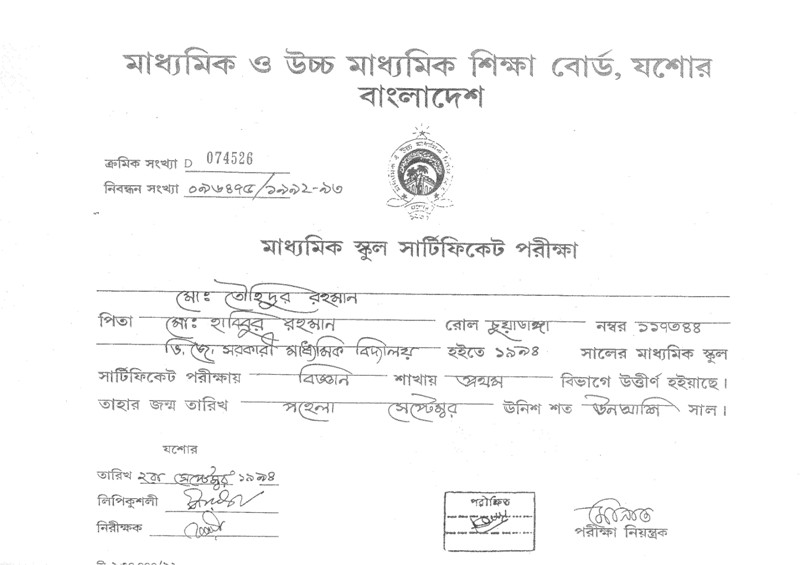 মাধ্যমিক ও উচ্চ মাধ্যমিক শিক্ষা বোর্ড, যশোর
বাংলাদেশ
ক্রমিক সংখ্যা D 074526
নিবন্ধন সংখ্যা ০৯৬৪৭৫/১৯৯২-৯৩
মাধ্যমিক স্কুল সার্টিফিকেট পরীক্ষা
মোঃ তৌহিদুর রহমান
পিতা মোঃ হাবিবুর রহমান রোল চুয়াডাঙ্গা নম্বর ১১৭৩৪৪
ভি, জে, সরকারী মাধ্যমিক বিদ্যালয় হইতে ১৯৯৪ সালের মাধ্যমিক স্কুল
সার্টিফিকেট পরীক্ষায় বিজ্ঞান শাখায় প্রথম বিভাগে উত্তীর্ণ হইয়াছে।
তাহার জন্ম তারিখ পহেলা সেপ্টেম্বর উনিশ শত উনআশি সাল।
যশোর
তারিখ ২রা সেপ্টেম্বর ১৯৯৪
লিপিকুশলী
নিরীক্ষক
পরীক্ষিত
পরীক্ষা নিয়ন্ত্রক